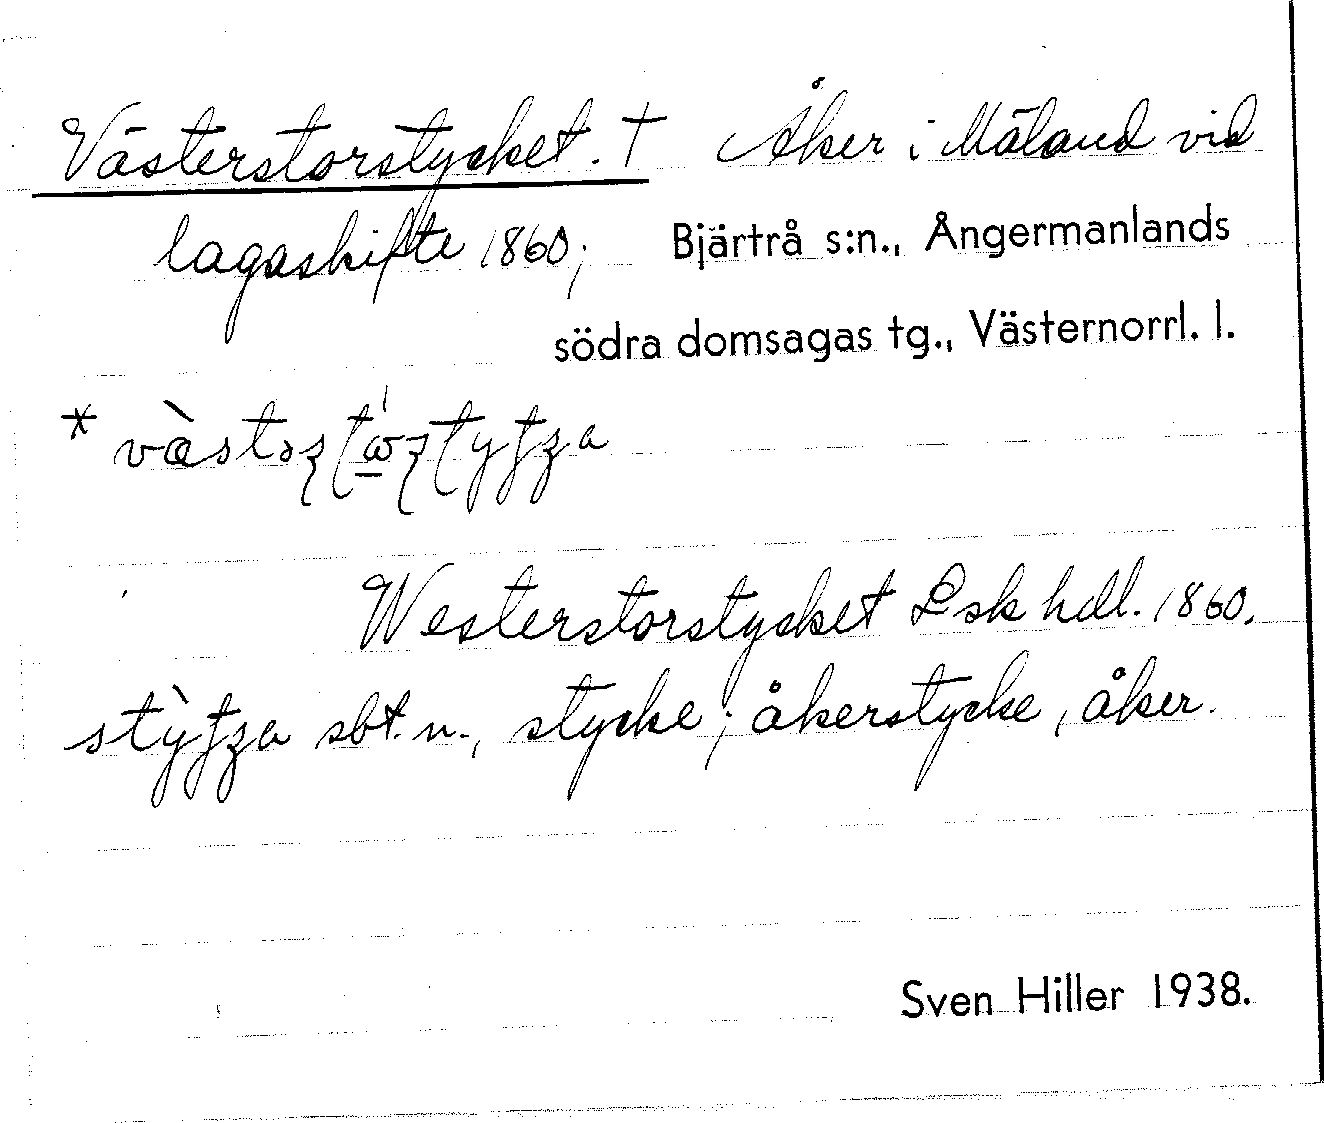 Västerstorstycket. † Åker i Måland vid
lagaskifte 1860; Bjärtrå s:n., Ångermanlands
södra domsagas tg., Västernorrl. l.
Westerstorstycket Lsk hdl. 1860.
sbt. n., stycke; åkerstycke, åker.
Sven Hiller 1938.